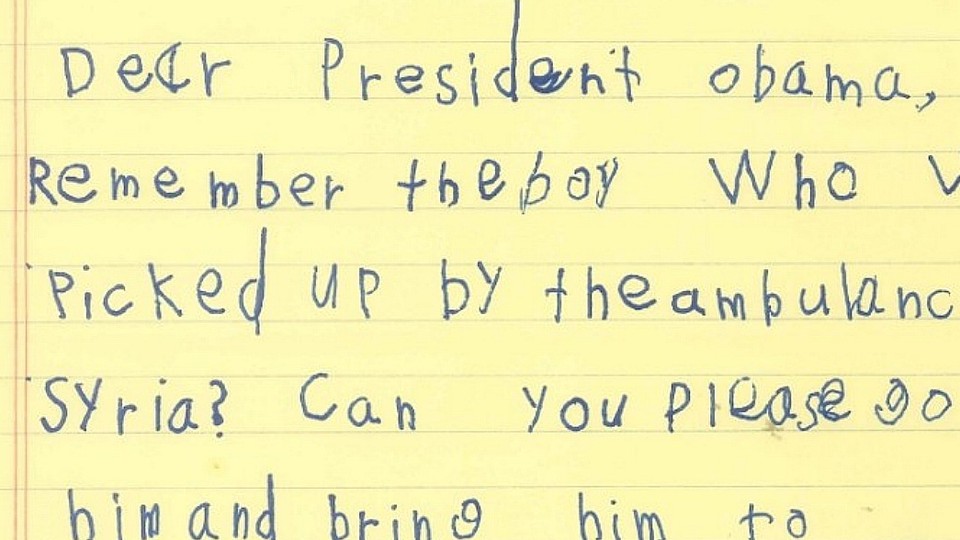 Dear President obama,
Remember the boy Who
Picked UP by the ambulanc
Syria? Can you Please go
him and bring him to